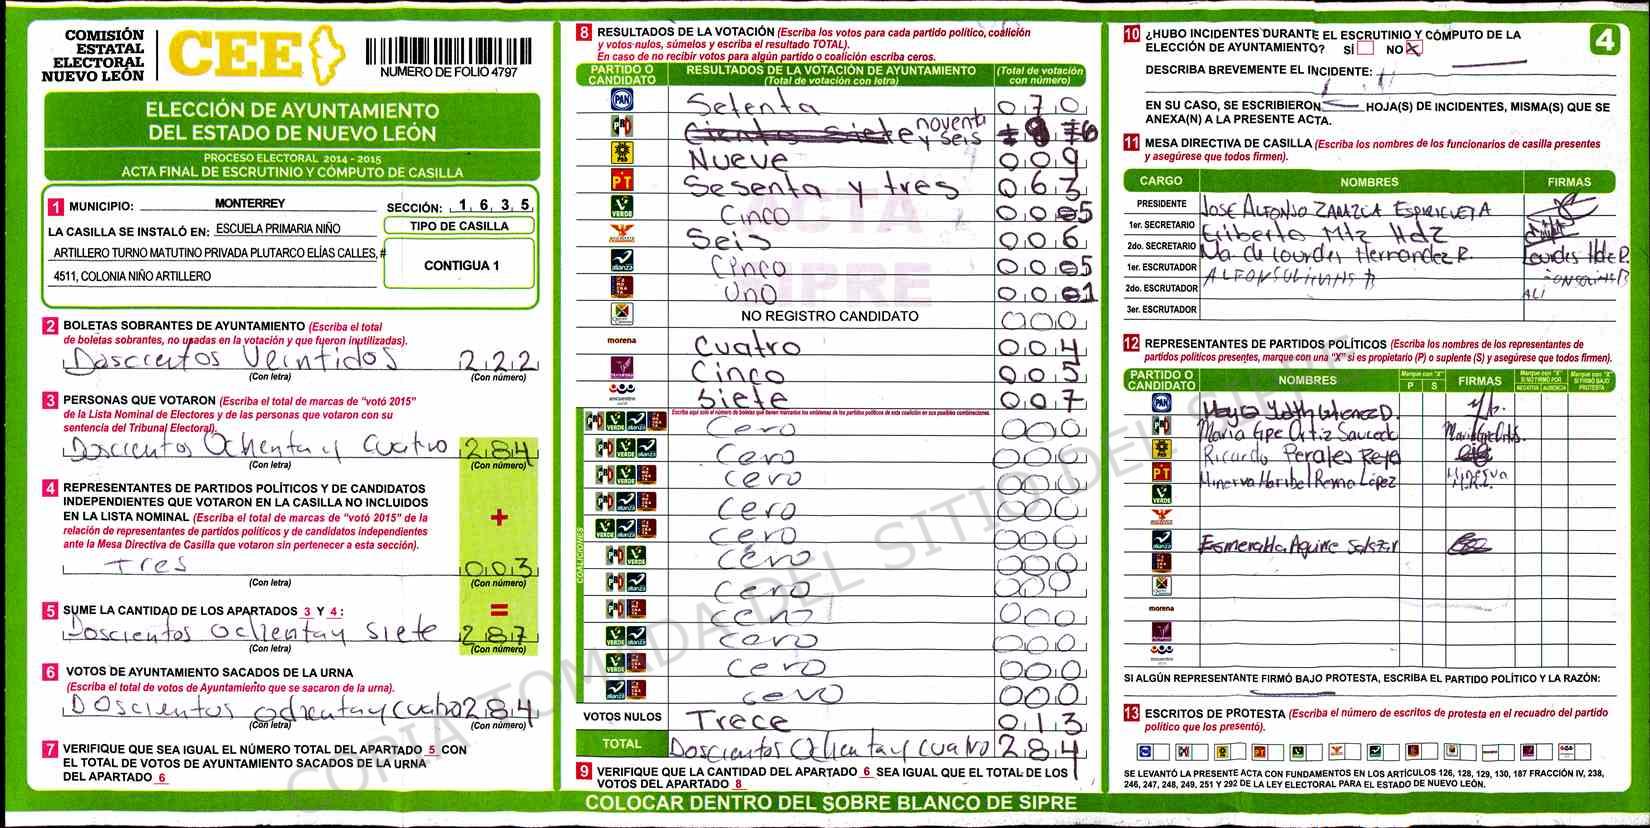 COMISIÓN
ESTATAL
ELECTORAL
NUEVO LEÓN
CEE
NUMERO DE FOLIO 4797
ELECCIÓN DE AYUNTAMIENTO
DEL ESTADO DE NUEVO LEÓN
PROCESO ELECTORAL 2014 - 2015
ACTA FINAL DE ESCRUTINIO Y CÓMPUTO DE CASILLA
1 MUNICIPIO: MONTERREY
SECCIÓN: 1 6 3 5
LA CASILLA SE INSTALÓ EN: ESCUELA PRIMARIA NIÑO
ARTILLERO TURNO MATUTINO PRIVADA PLUTARCO ELÍAS CALLES, #
4511, COLONIA NIÑO ARTILLERO
TIPO DE CASILLA
CONTIGUA 1
2 BOLETAS SOBRANTES DE AYUNTAMIENTO (Escriba el total
de boletas sobrantes, no usadas en la votación y que fueron inutilizadas).
Doscientos Veintidos 2 2 2
(Con letra) (Con número)
3 PERSONAS QUE VOTARON (Escriba el total de marcas de "votó 2015"
de la Lista Nominal de Electores y de las personas que votaron con su
sentencia del Tribunal Electoral).
Doscientos Ochenta y cuatro 2 8 4
(Con letra) (Con número)
4 REPRESENTANTES DE PARTIDOS POLÍTICOS Y DE CANDIDATOS
INDEPENDIENTES QUE VOTARON EN LA CASILLA NO INCLUIDOS
EN LA LISTA NOMINAL (Escriba el total de marcas de "votó 2015" de la
relación de representantes de partidos políticos y de candidatos independientes
ante la Mesa Directiva de Casilla que votaron sin pertenecer a esta sección).
+
Tres 0 0 3
(Con letra) (Con número)
5 SUME LA CANTIDAD DE LOS APARTADOS 3 Y 4 :
=
Doscientos ochenta y siete 2 8 7
(Con letra) (Con número)
6 VOTOS DE AYUNTAMIENTO SACADOS DE LA URNA
(Escriba el total de votos de Ayuntamiento que se sacaron de la urna).
Doscientos ochenta y cuatro 2 8 4
(Con letra) (Con número)
7 VERIFIQUE QUE SEA IGUAL EL NÚMERO TOTAL DEL APARTADO 5 CON
EL TOTAL DE VOTOS DE AYUNTAMIENTO SACADOS DE LA URNA
DEL APARTADO 6
8 RESULTADOS DE LA VOTACIÓN (Escriba los votos para cada partido político, coalición
y votos nulos, súmelos y escriba el resultado TOTAL).
En caso de no recibir votos para algún partido o coalición escriba ceros.
PARTIDO O CANDIDATO
RESULTADOS DE LA VOTACIÓN DE AYUNTAMIENTO
(Total de votación con letra)
(Total de votación con número)
PAN Setenta 0 7 0
PRD Ciento siete noventa y seis 9 6
Nueve 0 0 9
PT Sesenta y tres 0 6 3
VERDE Cinco 0 0 5
Seis 0 0 6
alianza Cinco 0 0 5
Uno 0 0 1
NO REGISTRO CANDIDATO 0 0 0
morena Cuatro 0 0 4
Cinco 0 0 5
encuentro Siete 0 0 7
Escriba aquí solo el número de boletas que tienen marcados los emblemas de los partidos políticos de esta coalición en sus posibles combinaciones.
COALICIONES
Cero 0 0 0
Cero 0 0 0
Cero 0 0 0
Cero 0 0 0
Cero 0 0 0
Cero 0 0 0
Cero 0 0 0
Cero 0 0 0
Cero 0 0 0
Cero 0 0 0
Cero 0 0 0
VOTOS NULOS Trece 0 1 3
TOTAL Doscientos Ochenta y cuatro 2 8 4
9 VERIFIQUE QUE LA CANTIDAD DEL APARTADO 6 SEA IGUAL QUE EL TOTAL DE LOS
VOTOS DEL APARTADO 8
COLOCAR DENTRO DEL SOBRE BLANCO DE SIPRE
ACTA
SIPRE
COPIA TOMADA DEL SITIO DEL SIPRE
10 ¿HUBO INCIDENTES DURANTE EL ESCRUTINIO Y CÓMPUTO DE LA
ELECCIÓN DE AYUNTAMIENTO? SÍ NO X
4
DESCRIBA BREVEMENTE EL INCIDENTE:
EN SU CASO, SE ESCRIBIERON HOJA(S) DE INCIDENTES, MISMA(S) QUE SE
ANEXA(N) A LA PRESENTE ACTA.
11 MESA DIRECTIVA DE CASILLA (Escriba los nombres de los funcionarios de casilla presentes
y asegúrese que todos firmen).
CARGO NOMBRES FIRMAS
PRESIDENTE JOSE ALFONSO
1er. SECRETARIO Eriberto Mtz Hdz
2do. SECRETARIO Ma. de Lourdes Hernandez R. Lourdes Hde R.
1er. ESCRUTADOR
2do. ESCRUTADOR
3er. ESCRUTADOR
12 REPRESENTANTES DE PARTIDOS POLÍTICOS (Escriba los nombres de los representantes de
partidos políticos presentes, marque con una "X" si es propietario (P) o suplente (S) y asegúrese que todos firmen).
PARTIDO O CANDIDATO NOMBRES Marque con "X" P S FIRMAS Marque con "X" SI NO FIRMÓ POR NEGATIVA AUSENCIA Marque con "X" SI FIRMÓ BAJO PROTESTA
PAN
Maria Gpe Ortiz Saucedo
Ricardo Perales Reyes
PT Minerva Maribel Reyna López Minerva
VERDE
alianza Esmeralda Aguirre Salazar
morena
encuentro
SI ALGÚN REPRESENTANTE FIRMÓ BAJO PROTESTA, ESCRIBA EL PARTIDO POLÍTICO Y LA RAZÓN:
13 ESCRITOS DE PROTESTA (Escriba el número de escritos de protesta en el recuadro del partido
político que los presentó).
SE LEVANTÓ LA PRESENTE ACTA CON FUNDAMENTOS EN LOS ARTÍCULOS 126, 128, 129, 130, 187 FRACCIÓN IV, 238,
246, 247, 248, 249, 251 Y 292 DE LA LEY ELECTORAL PARA EL ESTADO DE NUEVO LEÓN.